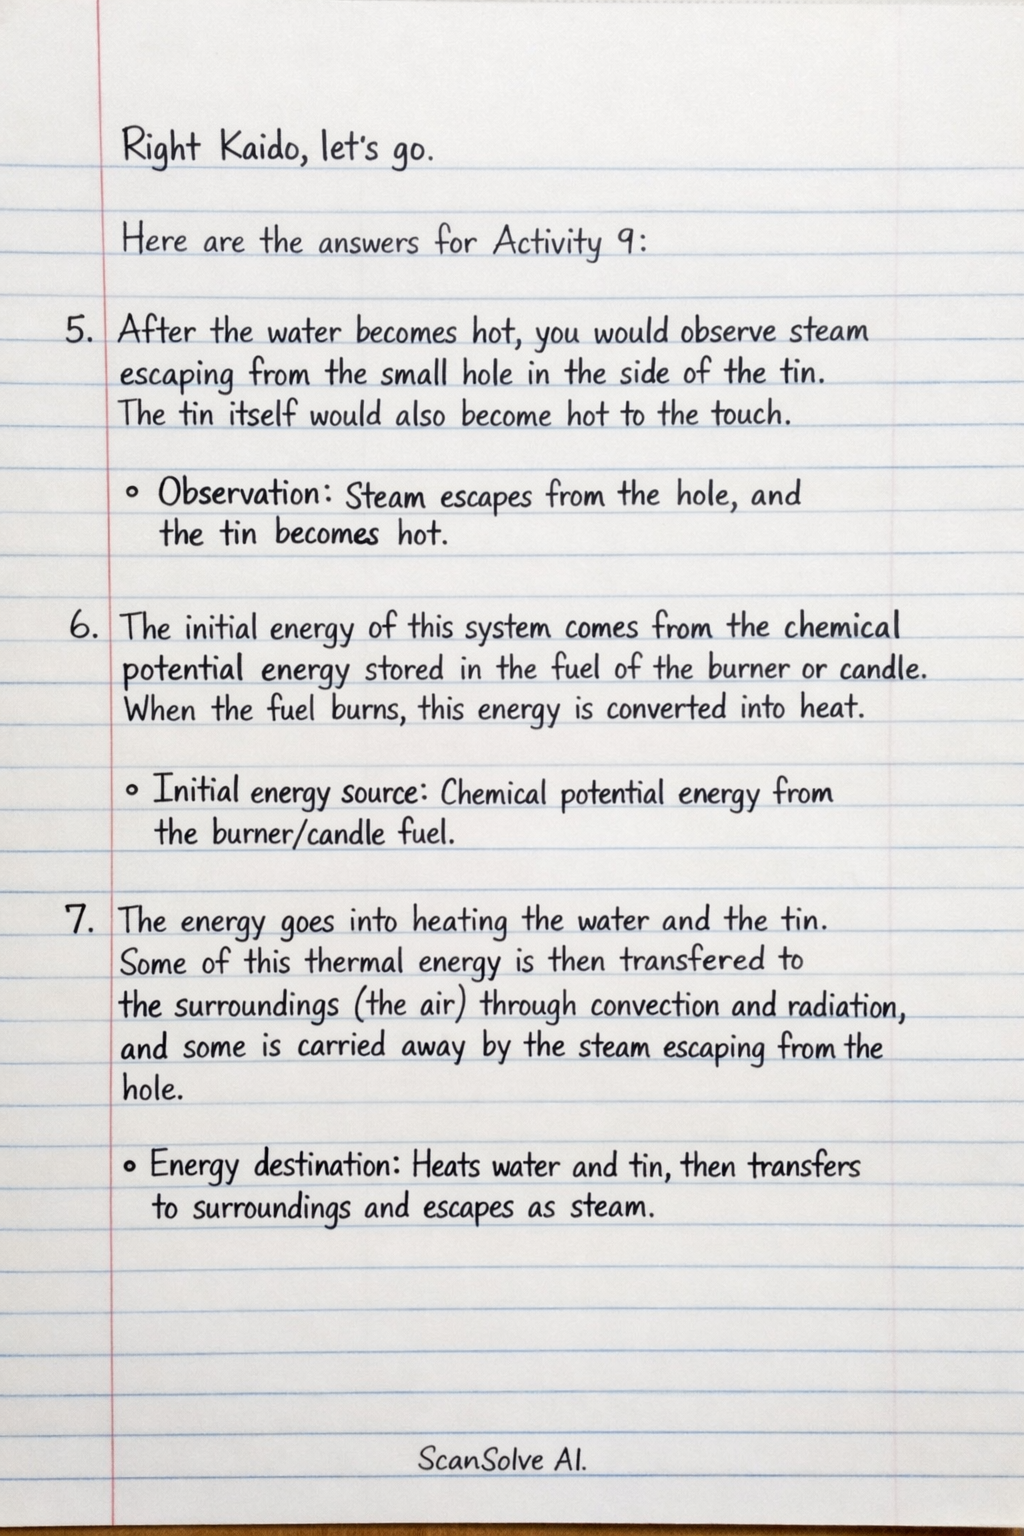 Right Kaido, let's go.
Here are the answers for Activity 9:
5. After the water becomes hot, you would observe steam
escaping from the small hole in the side of the tin.
The tin itself would also become hot to the touch.
∘ Observation: Steam escapes from the hole, and
the tin becomes hot.
6. The initial energy of this system comes from the chemical
potential energy stored in the fuel of the burner or candle.
When the fuel burns, this energy is converted into heat.
∘ Initial energy source: Chemical potential energy from
the burner/candle fuel.
7. The energy goes into heating the water and the tin.
Some of this thermal energy is then transfered to
the surroundings (the air) through convection and radiation,
and some is carried away by the steam escaping from the
hole.
∘ Energy destination: Heats water and tin, then transfers
to surroundings and escapes as steam.
ScanSolve AI.